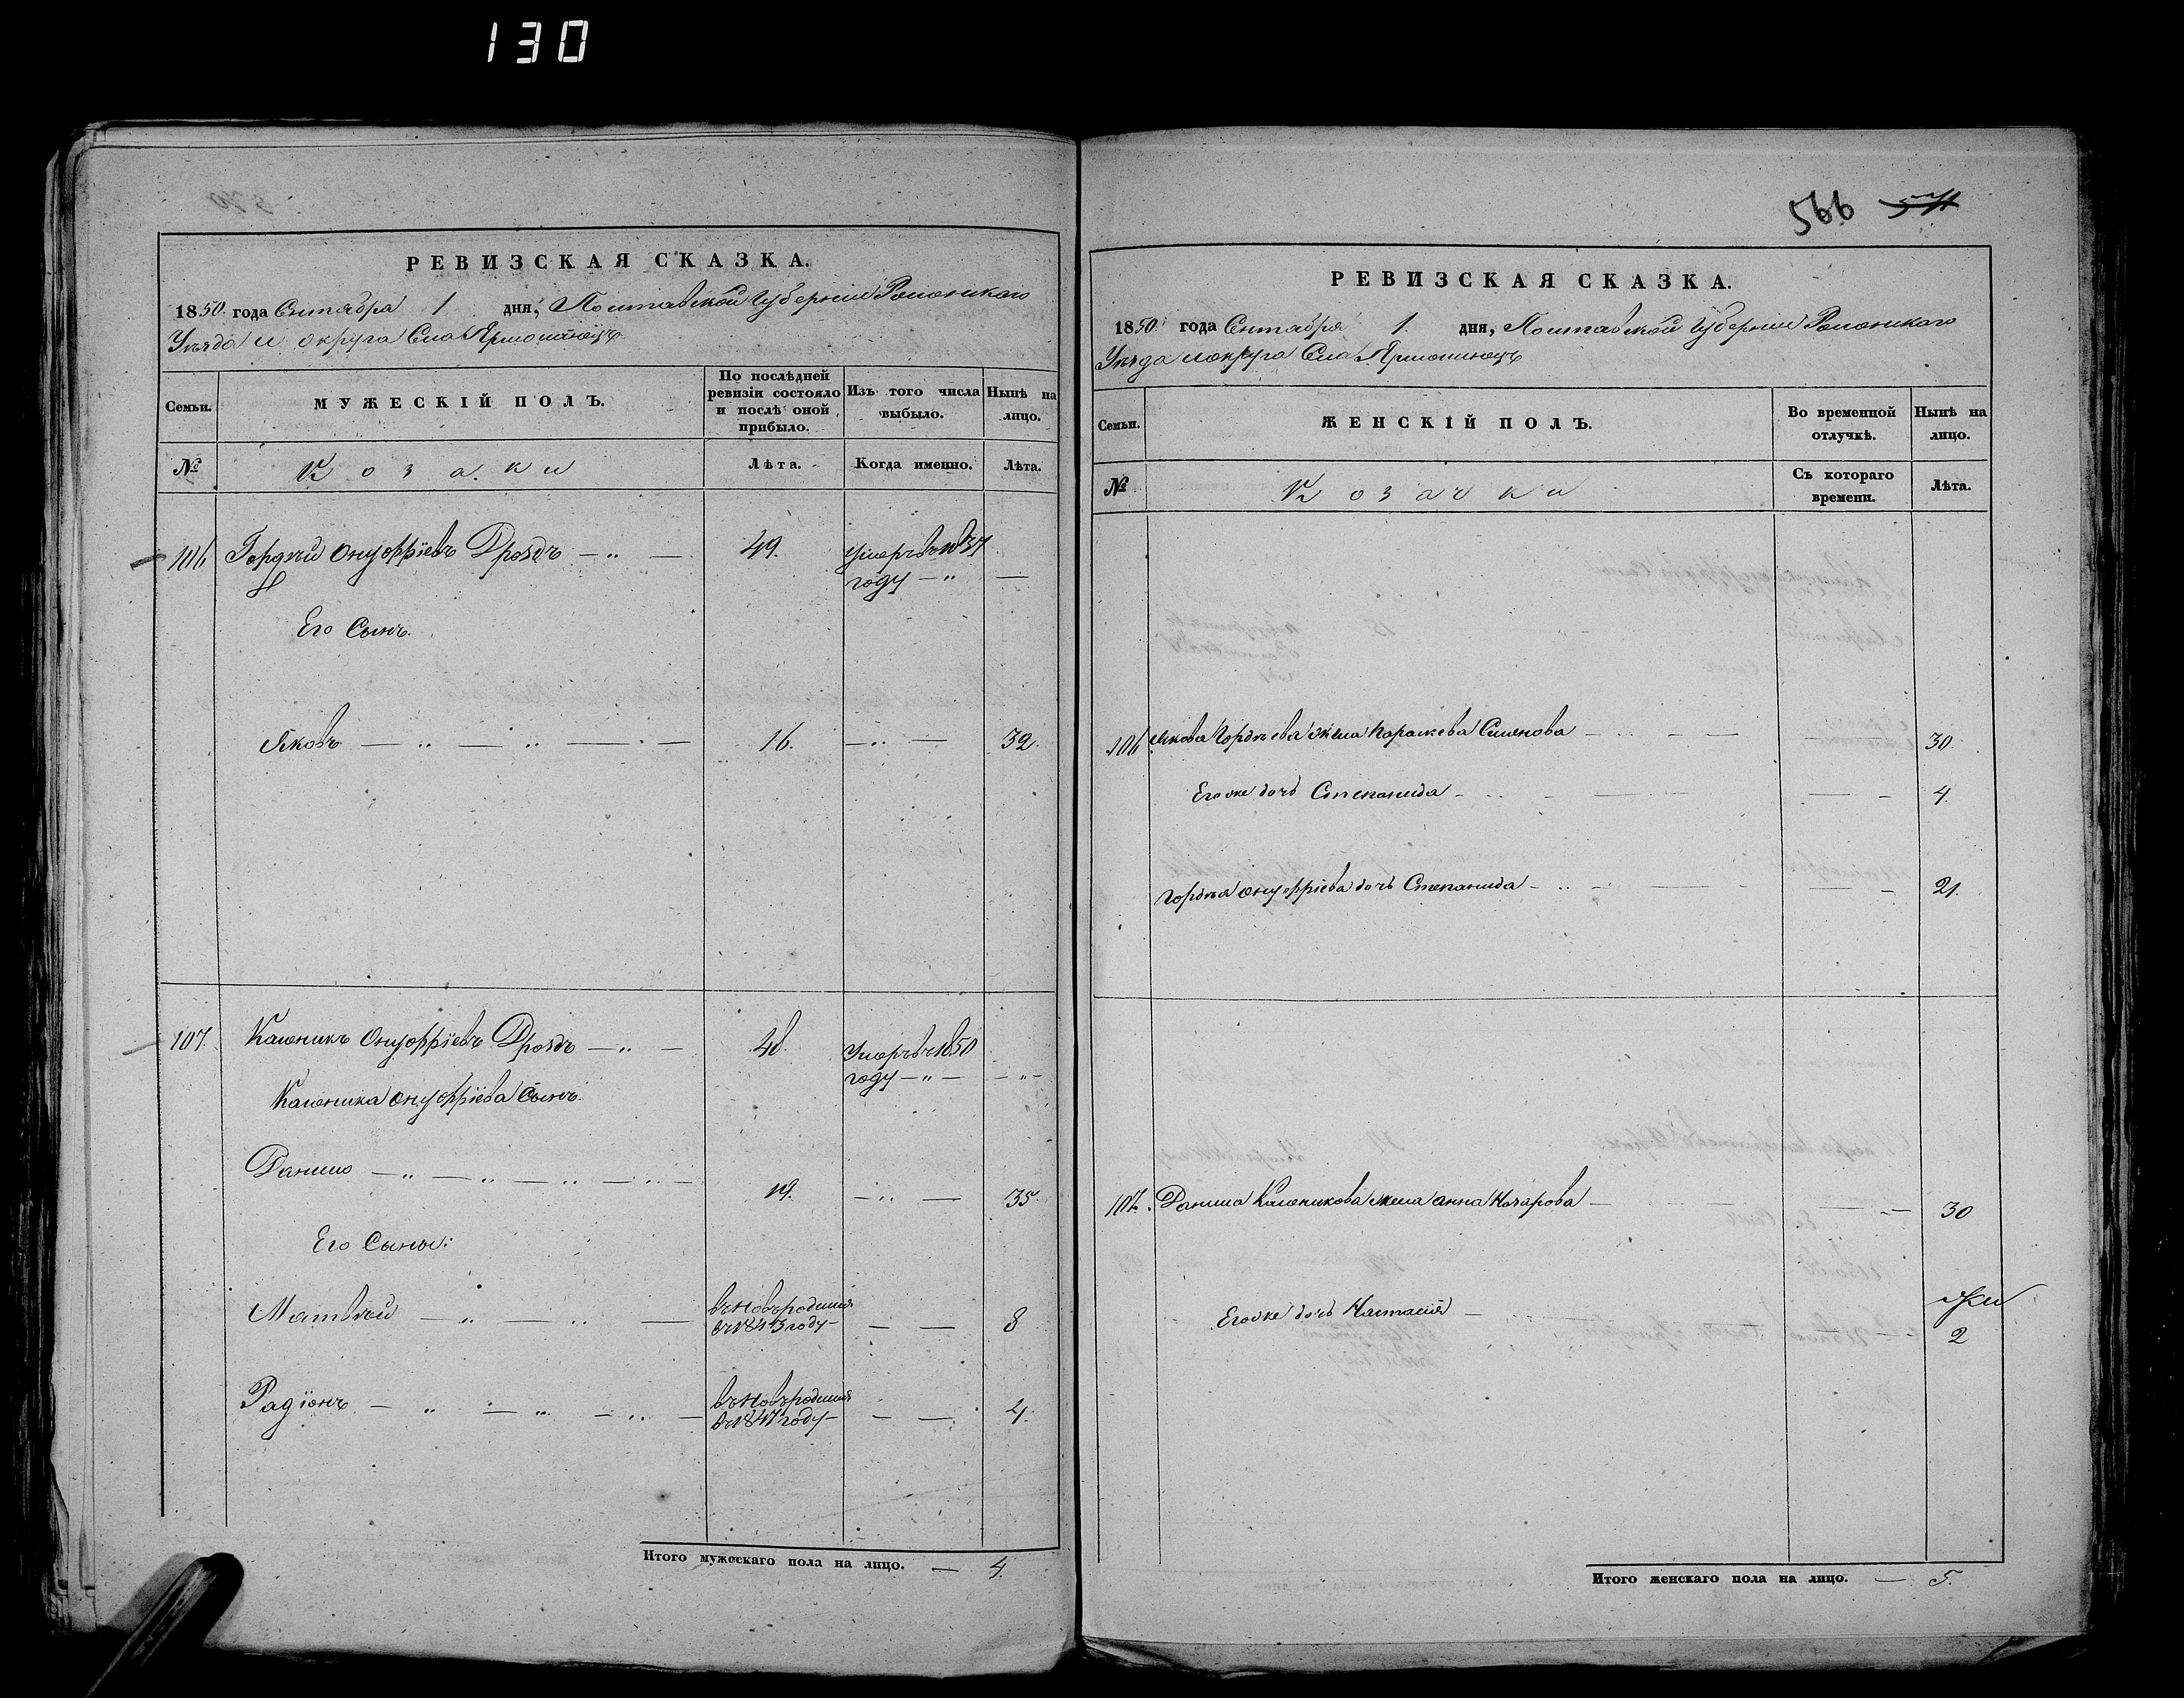 130
РЕВИЗСКАЯ СКАЗКА.
1850. года Сентября 1 дня, Полтавской Губернии Роменскаго
Уѣзда и округа Села Ярмолинецъ
Семьи.
МУЖЕСКІЙ ПОЛЪ.
По послѣдней ревизіи состояло и послѣ оной прибыло.
Изъ того числа выбыло.
Нынѣ на лицо.
№
Козаки
Лѣта.
Когда именно.
Лѣта.
106 Гордѣй Онуфріевъ Дроздъ 49. Умеръ въ 1837
году
Его Сынъ.
Яковъ 16. 32.
107. Каленикъ Онуфріевъ Дроздъ 48. Умеръ въ 1850
году
Каленика Онуфріева Сынъ.
Данило 19. 35
Его Сыны:
Матвѣй вновьродился
въ 1843 году 8
Радіонъ вновьродился
въ 1847 году 4.
Итого мужескаго пола на лицо. — 4.
566 571
РЕВИЗСКАЯ СКАЗКА.
1850. года Сентября 1. дня, Полтавской Губернии Роменскаго
Уѣзда и округа Села Ярмолинецъ
Семьи.
ЖЕНСКІЙ ПОЛЪ.
Во временной отлучкѣ.
Нынѣ на лицо.
№
Козачки
Съ котораго времени.
Лѣта.
106 Якова Гордѣева жена Параскева Семенова 30.
Его же дочь Степанида 4.
Гордѣя Онуфріева дочь Степанида 21.
107. Данила Каленикова жена Анна Назарова 30
Его же дочь Настасія
2
Итого женскаго пола на лицо. — 5.